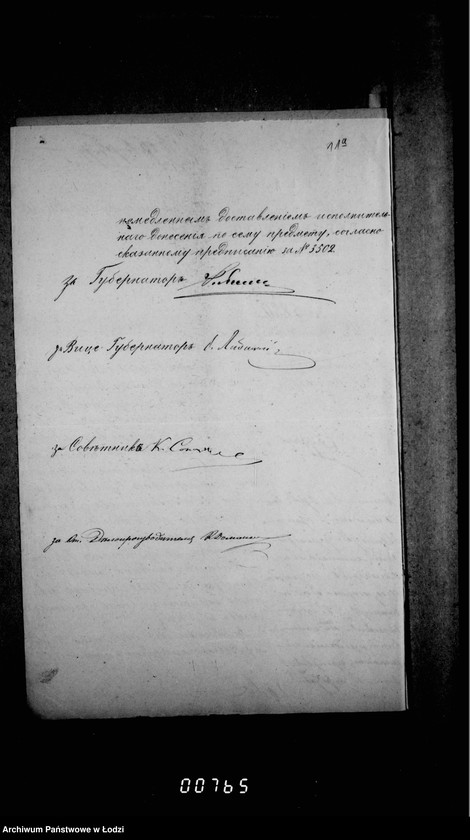 11а
немедленнымъ доставленіемъ исполнитель-
наго донесенія по сему предмету, согласно
сказанному предписанію за № 5502
за Губернаторъ
за Вице Губернаторъ
за Совѣтникъ К.
за Дѣлопроизводителя
00765
Archiwum Państwowe w Łodzi